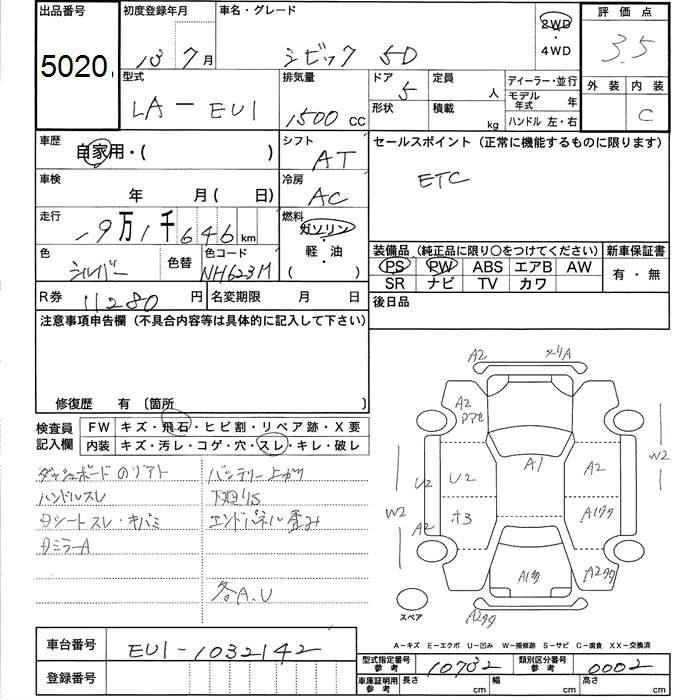 出品番号 初度登録年月 車名・グレード 2WD・4WD 評価点
5020 13年 7月 シビック 5D 3.5
型式 LA-EU1 排気量 1500 CC ドア 5 形状 定員 人 積載 kg ディーラー・並行 モデル年式 年 ハンドル 左・右 外装 内装 C
車歴 自家用・( ) シフト AT セールスポイント (正常に機能するものに限ります)
車検 年 月 ( 日) 冷房 AC ETC
走行 19万1千646km 燃料 ガソリン・軽油 ( )
色 シルバー 色替 色コード NH623M 装備品 (純正品に限り○をつけてください) 新車保証書
PS PW ABS エアB AW 有・無
SR ナビ TV カワ
R券 11280円 名変期限 月 日 後日品
注意事項申告欄 (不具合内容等は具体的に記入して下さい)
修復歴 有 〔箇所
検査員記入欄 FW キズ・飛石・ヒビ割・リペア跡・X要
内装 キズ・汚レ・コゲ・穴・スレ・キレ・破レ
ダッシュボード バッテリー上がり
ハンドルスレ 下廻りS
Dシートスレ・キバミ エンドパネル歪み
DミラーA
各A.U
A2
A2
A1
A2
U2
U2
W2
W2
A2
A2タタ
A2タタ
スペア
A-キズ E-エクボ U-凹み W-補修跡 S-サビ C-腐食 XX-交換済
車台番号 EU1-1032142
登録番号
型式指定番号 参考 10732 類別区分番号 参考 0002
車庫証明用 参考 長さ cm 幅 cm 高さ cm